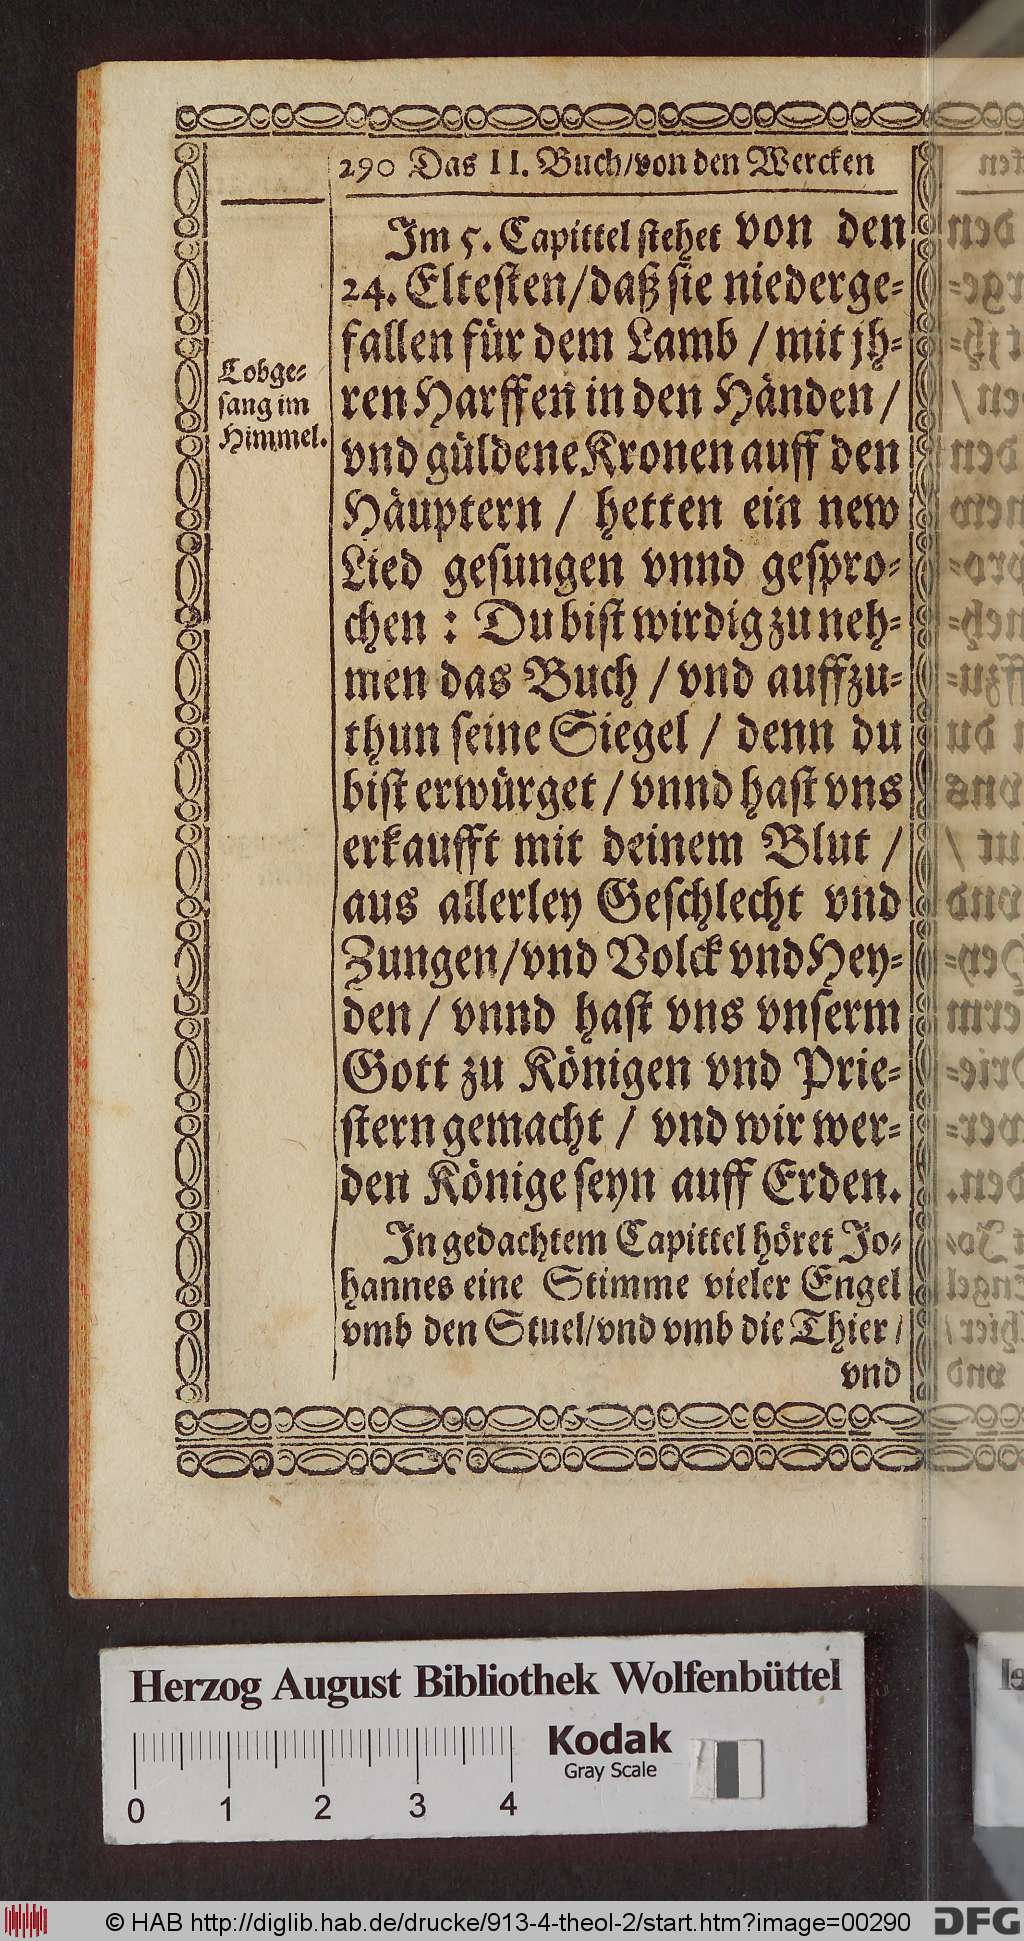 290 Das II. Buch/von den Wercken
Im 5. Capittel stehet von den
24. Eltesten/daß sie niederge-
fallen für dem Lamb / mit jh-
ren Harffen in den Händen /
vnd güldene Kronen auff den
Häuptern / hetten ein new
Lied gesungen vnnd gespro-
chen : Du bist wirdig zu neh-
men das Buch / vnd auffzu-
thun seine Siegel / denn du
bist erwürget / vnnd hast vns
erkaufft mit deinem Blut /
aus allerley Geschlecht vnd
Zungen/vnd Volck vnd Hey-
den / vnnd hast vns vnserm
Gott zu Königen vnd Prie-
stern gemacht / vnd wir wer-
den Könige seyn auff Erden.
In gedachtem Capittel höret Jo-
hannes eine Stimme vieler Engel
vmb den Stuel/vnd vmb die Thier /
vnd
Lobge-
sang im
Himmel.
Herzog August Bibliothek Wolfenbüttel
Kodak
Gray Scale
0 1 2 3 4
© HAB http://diglib.hab.de/drucke/913-4-theol-2/start.htm?image=00290
DFG